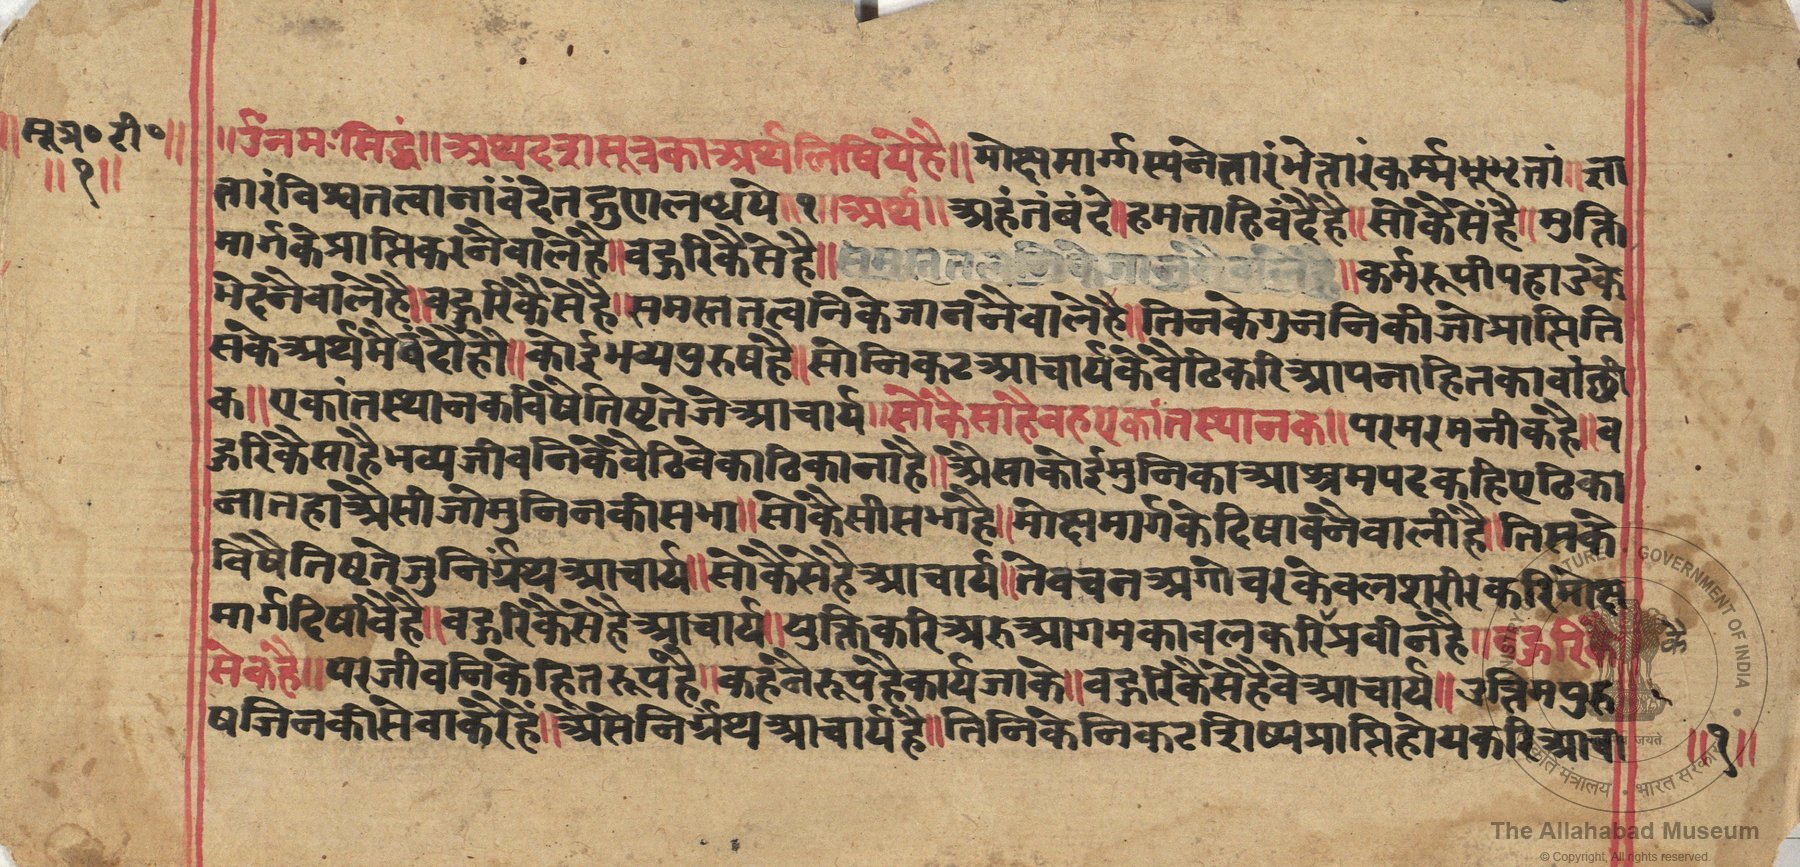 ॥सूत्र॰टी॰॥
॥१॥
॥ॐनमःसिद्धं॥अथदशसूत्रकाअर्थलिषियेहै॥मोक्षमार्ग्गस्यनेत्तारंभेत्तारंकर्म्मभूभृतां॥ज्ञा
त्तारंविश्वतत्वानांवंदेतद्गुणलब्धये॥१॥अर्थ॥अहंतंबंदे॥हमताहिवंदैहै॥सोकैसेंहै॥मुक्ति
मार्गकेप्राप्तिकरनैवालेहै॥वहुरिकैसेहै॥ ॥कर्मरूपीपहाडके
भेदनैवालेहै॥वहुरिकैसेहै॥समस्ततत्वनिकेजाननैवालेहै॥तिनकेगुननिकीजोप्राप्तिति
सकेअर्थमैवंदौहौ॥कोईभव्यपुरुषहै॥सोनिकटआचार्यकेवैठिकरिआपनाहितकावांछी
क॥एकांतस्थानकविषैतिष्टतेजेआचार्य॥सोकैसाहैवहएकांतस्थानक॥परमरमनीकहै॥व
हुरिकैसाहैभव्यजीवनिकेवैठिवेकाठिकानाहै॥अैसाकोईमुनिकाआश्रमपदकहिएठिका
नातहाअैसीजोमुनिनकीसभा॥सोकैसीसभाहै॥मोक्षमार्गकेदिषावनैवालीहै॥तिसके
विषैतिष्टतेजुनिर्ग्रंथआचार्य॥सोकैसेहैआचार्य॥तेवचनअगोचरकेवलशरीरकरिमोक्ष
मार्गदिषावैहै॥वहुरिकैसेहैआचार्य॥युक्तिकरिअरुआगमकावलकरिप्रवीनहै॥वहुरिकै
सेकहै॥परजीवनिकेहितरूपहै॥कहनैरूपहैकार्यजाके॥वहुरिकैसेहैवेआचार्य॥उत्तिमपुरु
षजिनकीसेवाकरैहैं॥अैसेनिर्ग्रंथआचार्यहै॥तिनिकेनिकटशिष्यप्राप्तिहोयकरिआचा
॥१॥
MINISTRY OF CULTURE • GOVERNMENT OF INDIA
सत्यमेव जयते
संस्कृति मंत्रालय • भारत सरकार
The Allahabad Museum
© Copyright, All rights reserved.